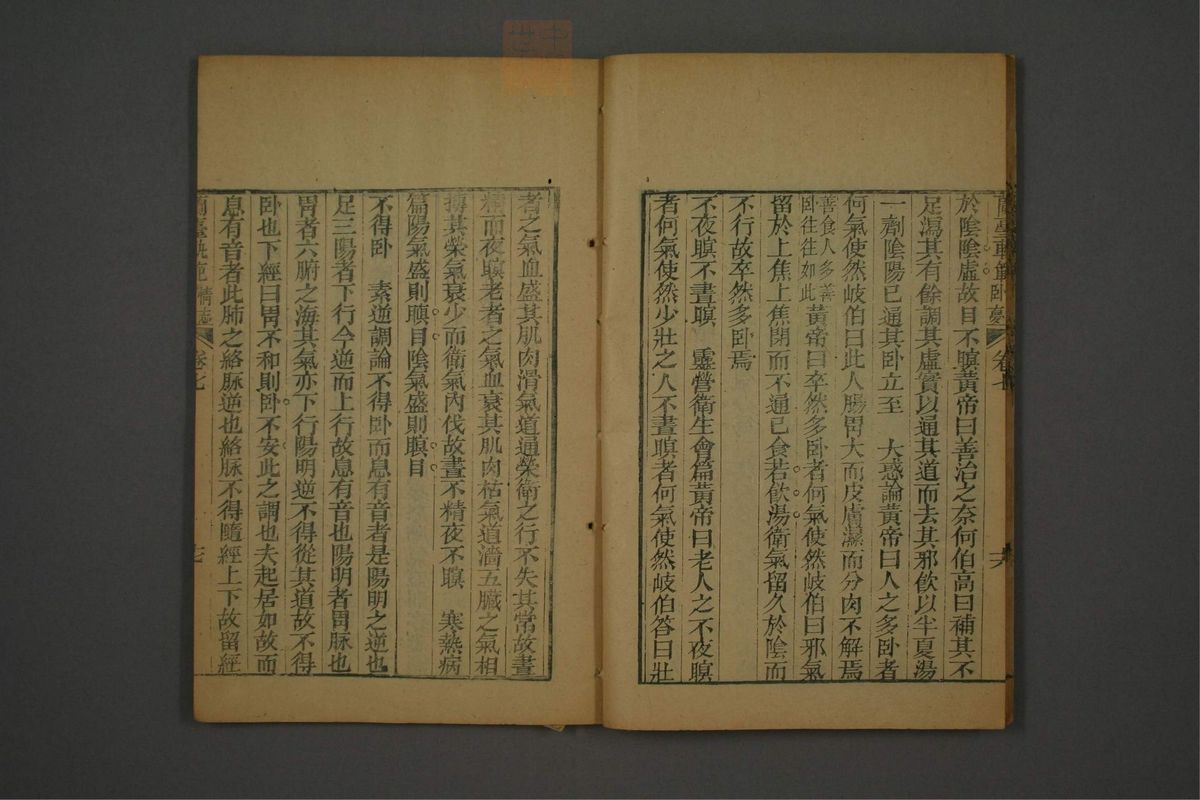 於陰陰虛故目不瞑黃帝曰善治之奈何伯高曰補其不
足瀉其有餘調其虛實以通其道而去其邪飲以半夏湯
一劑陰陽已通其卧立至 大惑論黃帝曰人之多卧者
何氣使然岐伯曰此人腸胃大而皮膚濕而分肉不解焉
善食人多善
卧往往如此
黃帝曰卒然多卧者何氣使然岐伯曰邪氣
留於上焦上焦閉而不通已食若飲湯衛氣留久於陰而
不行故卒然多卧焉
不夜瞑不晝瞑 靈營衛生會篇黃帝曰老人之不夜瞑
者何氣使然少壯之人不晝瞑者何氣使然岐伯答曰壯
者之氣血盛其肌肉滑氣道通榮衛之行不失其常故晝
精而夜瞑老者之氣血衰其肌肉枯氣道濇五臟之氣相
搏其榮氣衰少而衛氣內伐故晝不精夜不瞑 寒熱病
篇陽氣盛則瞋目陰氣盛則瞑目
不得卧 素逆調論不得卧而息有音者是陽明之逆也
足三陽者下行今逆而上行故息有音也陽明者胃脉也
胃者六腑之海其氣亦下行陽明逆不得從其道故不得
卧也下經曰胃不和則卧不安此之謂也夫起居如故而
息有音者此肺之絡脉逆也絡脉不得隨經上下故留經
卷七
七